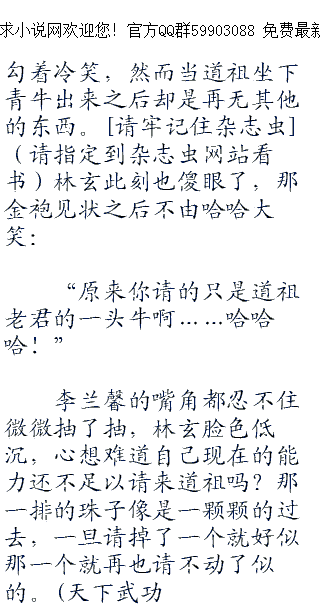 求小说网欢迎您！官方QQ群59903088 免费最新
勾着冷笑，然而当道祖坐下
青牛出来之后却是再无其他
的东西。[请牢记住杂志虫]
（请指定到杂志虫网站看
书）林玄此刻也傻眼了，那
金袍见状之后不由哈哈大
笑：
“原来你请的只是道祖
老君的一头牛啊……哈哈
哈！”
李兰馨的嘴角都忍不住
微微抽了抽，林玄脸色低
沉，心想难道自己现在的能
力还不足以请来道祖吗？那
一排的珠子像是一颗颗的过
去，一旦请掉了一个就好似
那一个就再也请不动了似
的。(天下武功